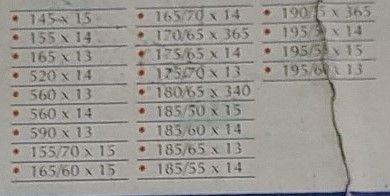 145 x 15
155 x 14
165 x 13
520 x 14
560 x 13
560 x 14
590 x 13
155/70 x 15
165/60 x 15
165/70 x 14
170/65 x 365
175/65 x 14
175/70 x 13
180/65 x 340
185/50 x 15
185/60 x 14
185/65 x 13
185/55 x 14
x 365
x 14
x 15
x 13